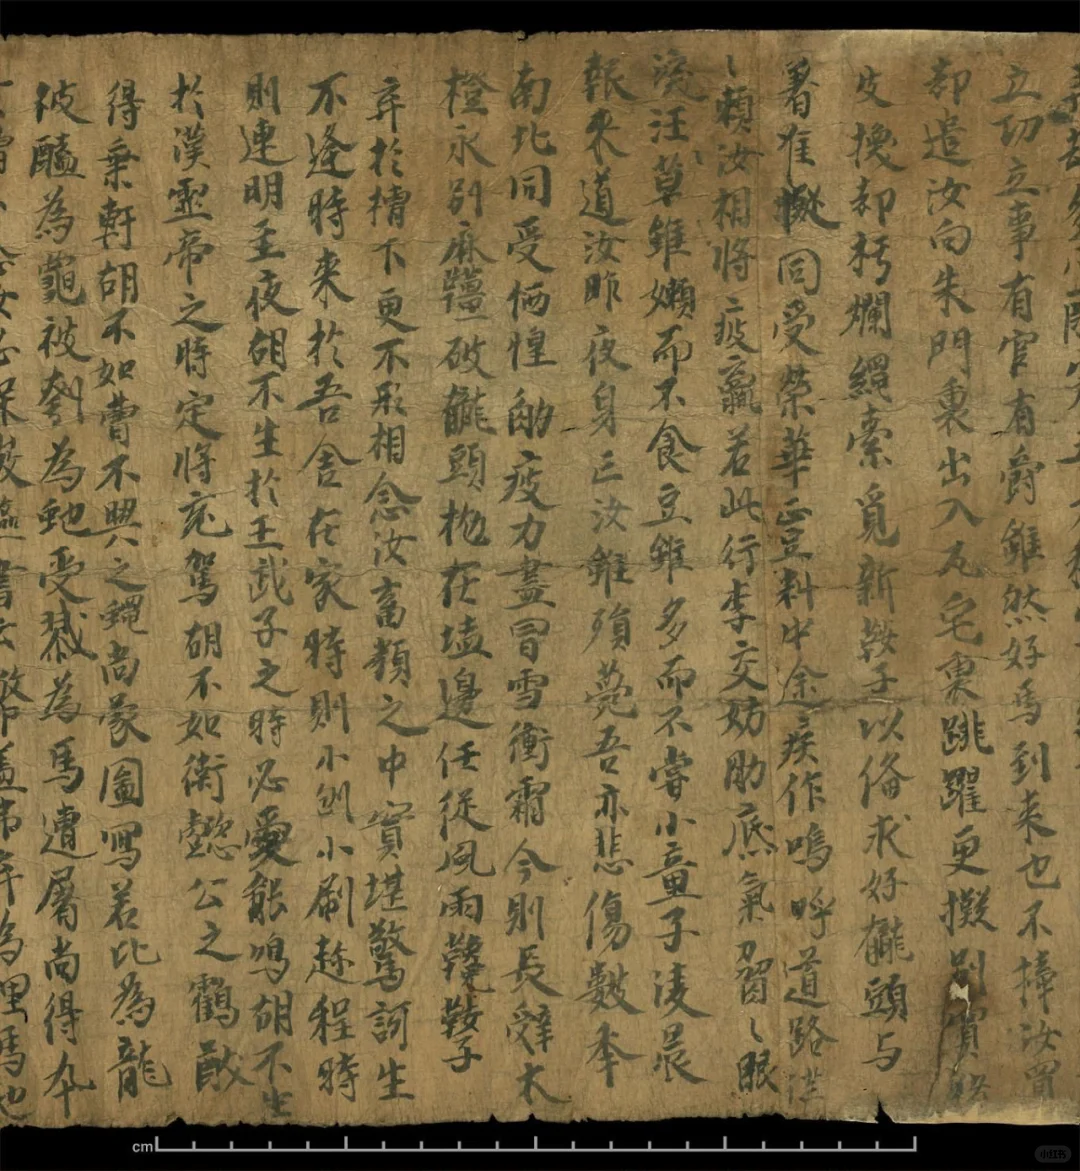 立功立事有官有爵雖然好馬到来也不捧汝買
却遣汝向朱門裏出入瓦宅裏跳躍更擬別買
皮換却朽爛繩索覓新鞍子以俻求好櫳頭与
署唯擬同受榮華豆料中途疾作嗚呼道路
々賴汝相將疲羸若此行李交妨肋底氣習々眼
淚汪々草雖嬾而不食豆雖多而不甞小童子淩晨
報来道汝昨夜身亡汝雖殞薨吾亦悲傷數年
南北同受恓惶疲力盡冒雪衝霜今則長辤木
橙永別麻韁破籠頭抛在墻邊任從風雨鞍子
弃於槽下更不形相念汝畜類之中實堪驚訝生
不逢時来於吾舍在家時則小刎小刷趂程時
則連明至夜胡不生於王武子之時必愛能鳴胡不生
於漢靈帝之時定將充駕胡不如衛懿公之鶴猷
得乗軒胡不如曹不興之蠅尚蒙圖寫若比為龍
被醢為龜被刳為虵受戮為馬遭屠尚得夲
cm